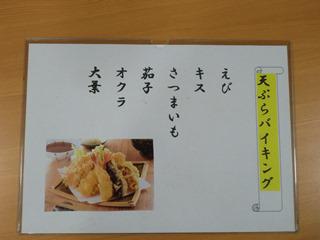 天ぷらバイキング
えび
キス
さつまいも
茄子
オクラ
大葉